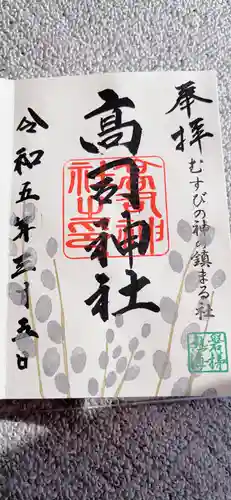 奉拝
むすびの神の鎮まる社
高司神社
令和五年三月五日